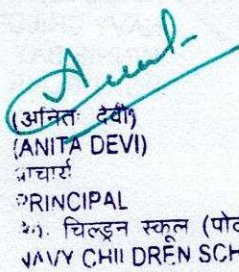 (अनित देवी)
(ANITA DEVI)
PRINCIPAL
चिल्ड्रन स्कूल (पोर
NAVY CHILDREN SCH